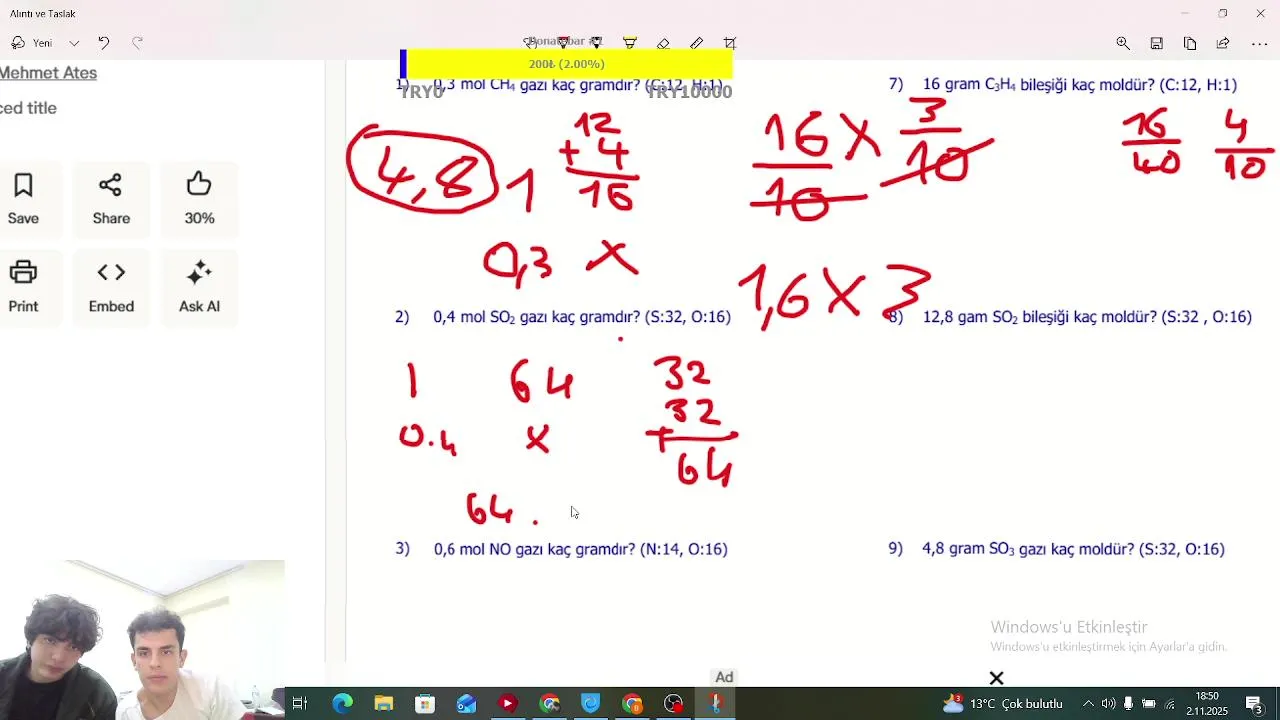 Alıntı ve Taslak
Yeni
Donatebar #1
200₺ (2.00%)
TRY0
TRY10000
Mehmet Ates
ced title
Save
Share
30%
Print
Embed
Ask AI
1) 0,3 mol CH₄ gazı kaç gramdır? (C:12, H:1)
4,8
12
+ 4
16
1
0,3 X
16 X 3
10 10
1,6 X 3
7) 16 gram C₃H₄ bileşiği kaç moldür? (C:12, H:1)
16 4
40 10
2) 0,4 mol SO₂ gazı kaç gramdır? (S:32, O:16)
1 64
0.4 X
32
32
+
64
64 .
8) 12,8 gam SO₂ bileşiği kaç moldür? (S:32 , O:16)
3) 0,6 mol NO gazı kaç gramdır? (N:14, O:16)
9) 4,8 gram SO₃ gazı kaç moldür? (S:32, O:16)
Windows'u Etkinleştir
Windows'u etkinleştirmek için Ayarlar'a gidin.
Ad
13°C
18:50
2.11.2025